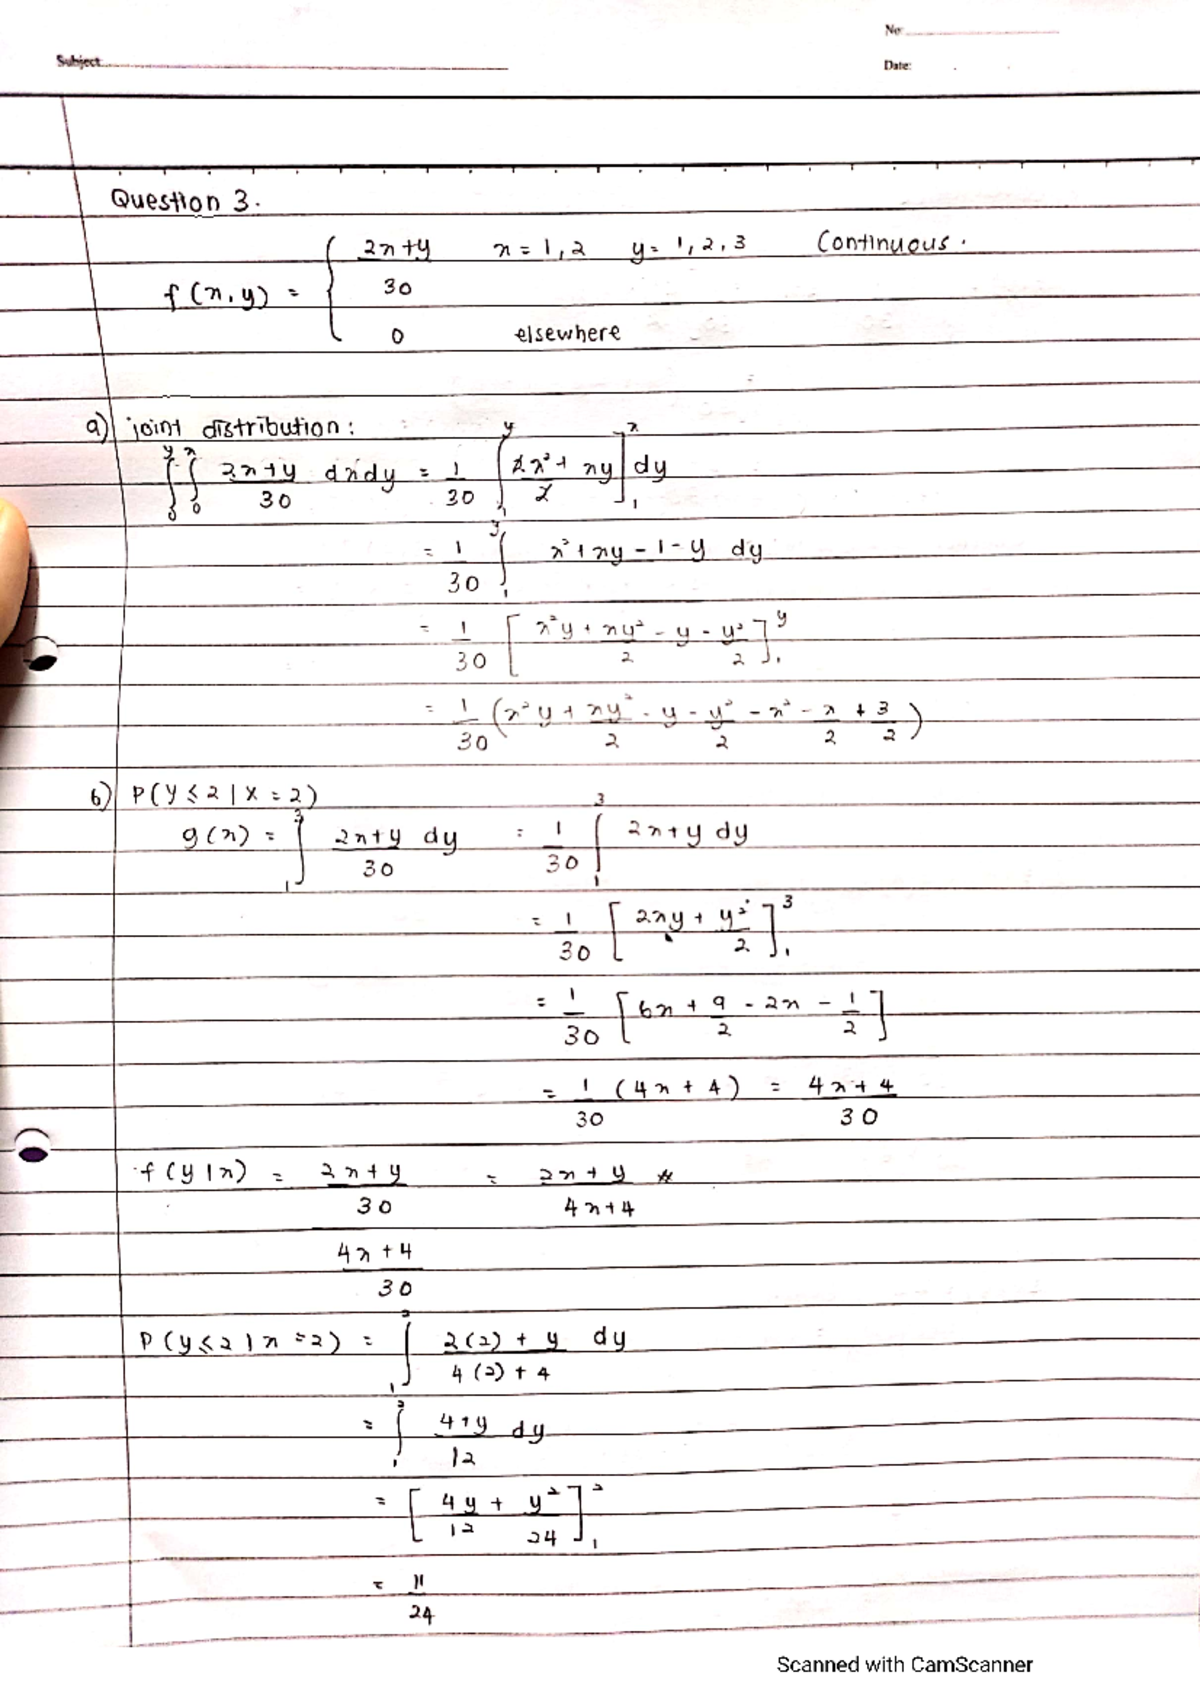 No:
Subject
Date:
Question 3.
f(x,y) = { 2x+y / 30   x = 1, 2   y = 1, 2, 3   Continuous.
0   elsewhere
a) joint distribution:
∫₀^y ∫₀^x 2x+y / 30 dxdy = 1/30 ∫₁^y [2x²/2 + xy]₁^x dy
= 1/30 ∫₁^y x² + xy - 1 - y dy
= 1/30 [x²y + xy²/2 - y - y²/2]₁^y
= 1/30 (x²y + xy²/2 - y - y²/2 - x² - x/2 + 3/2)
b) P(Y ≤ 2 | X = 2)
g(x) = ∫₁³ 2x+y / 30 dy = 1/30 ∫₁³ 2x+y dy
= 1/30 [2xy + y²/2]₁³
= 1/30 [6x + 9/2 - 2x - 1/2]
= 1/30 (4x + 4) = 4x+4 / 30
f(y|x) = 2x+y / 30 = 2x+y / 4x+4 *
4x+4 / 30
P(y ≤ 2 | x = 2) = ∫₁² 2(2) + y / 4(2) + 4 dy
= ∫₁² 4+y / 12 dy
= [4y/12 + y²/24]₁²
= 11/24
Scanned with CamScanner